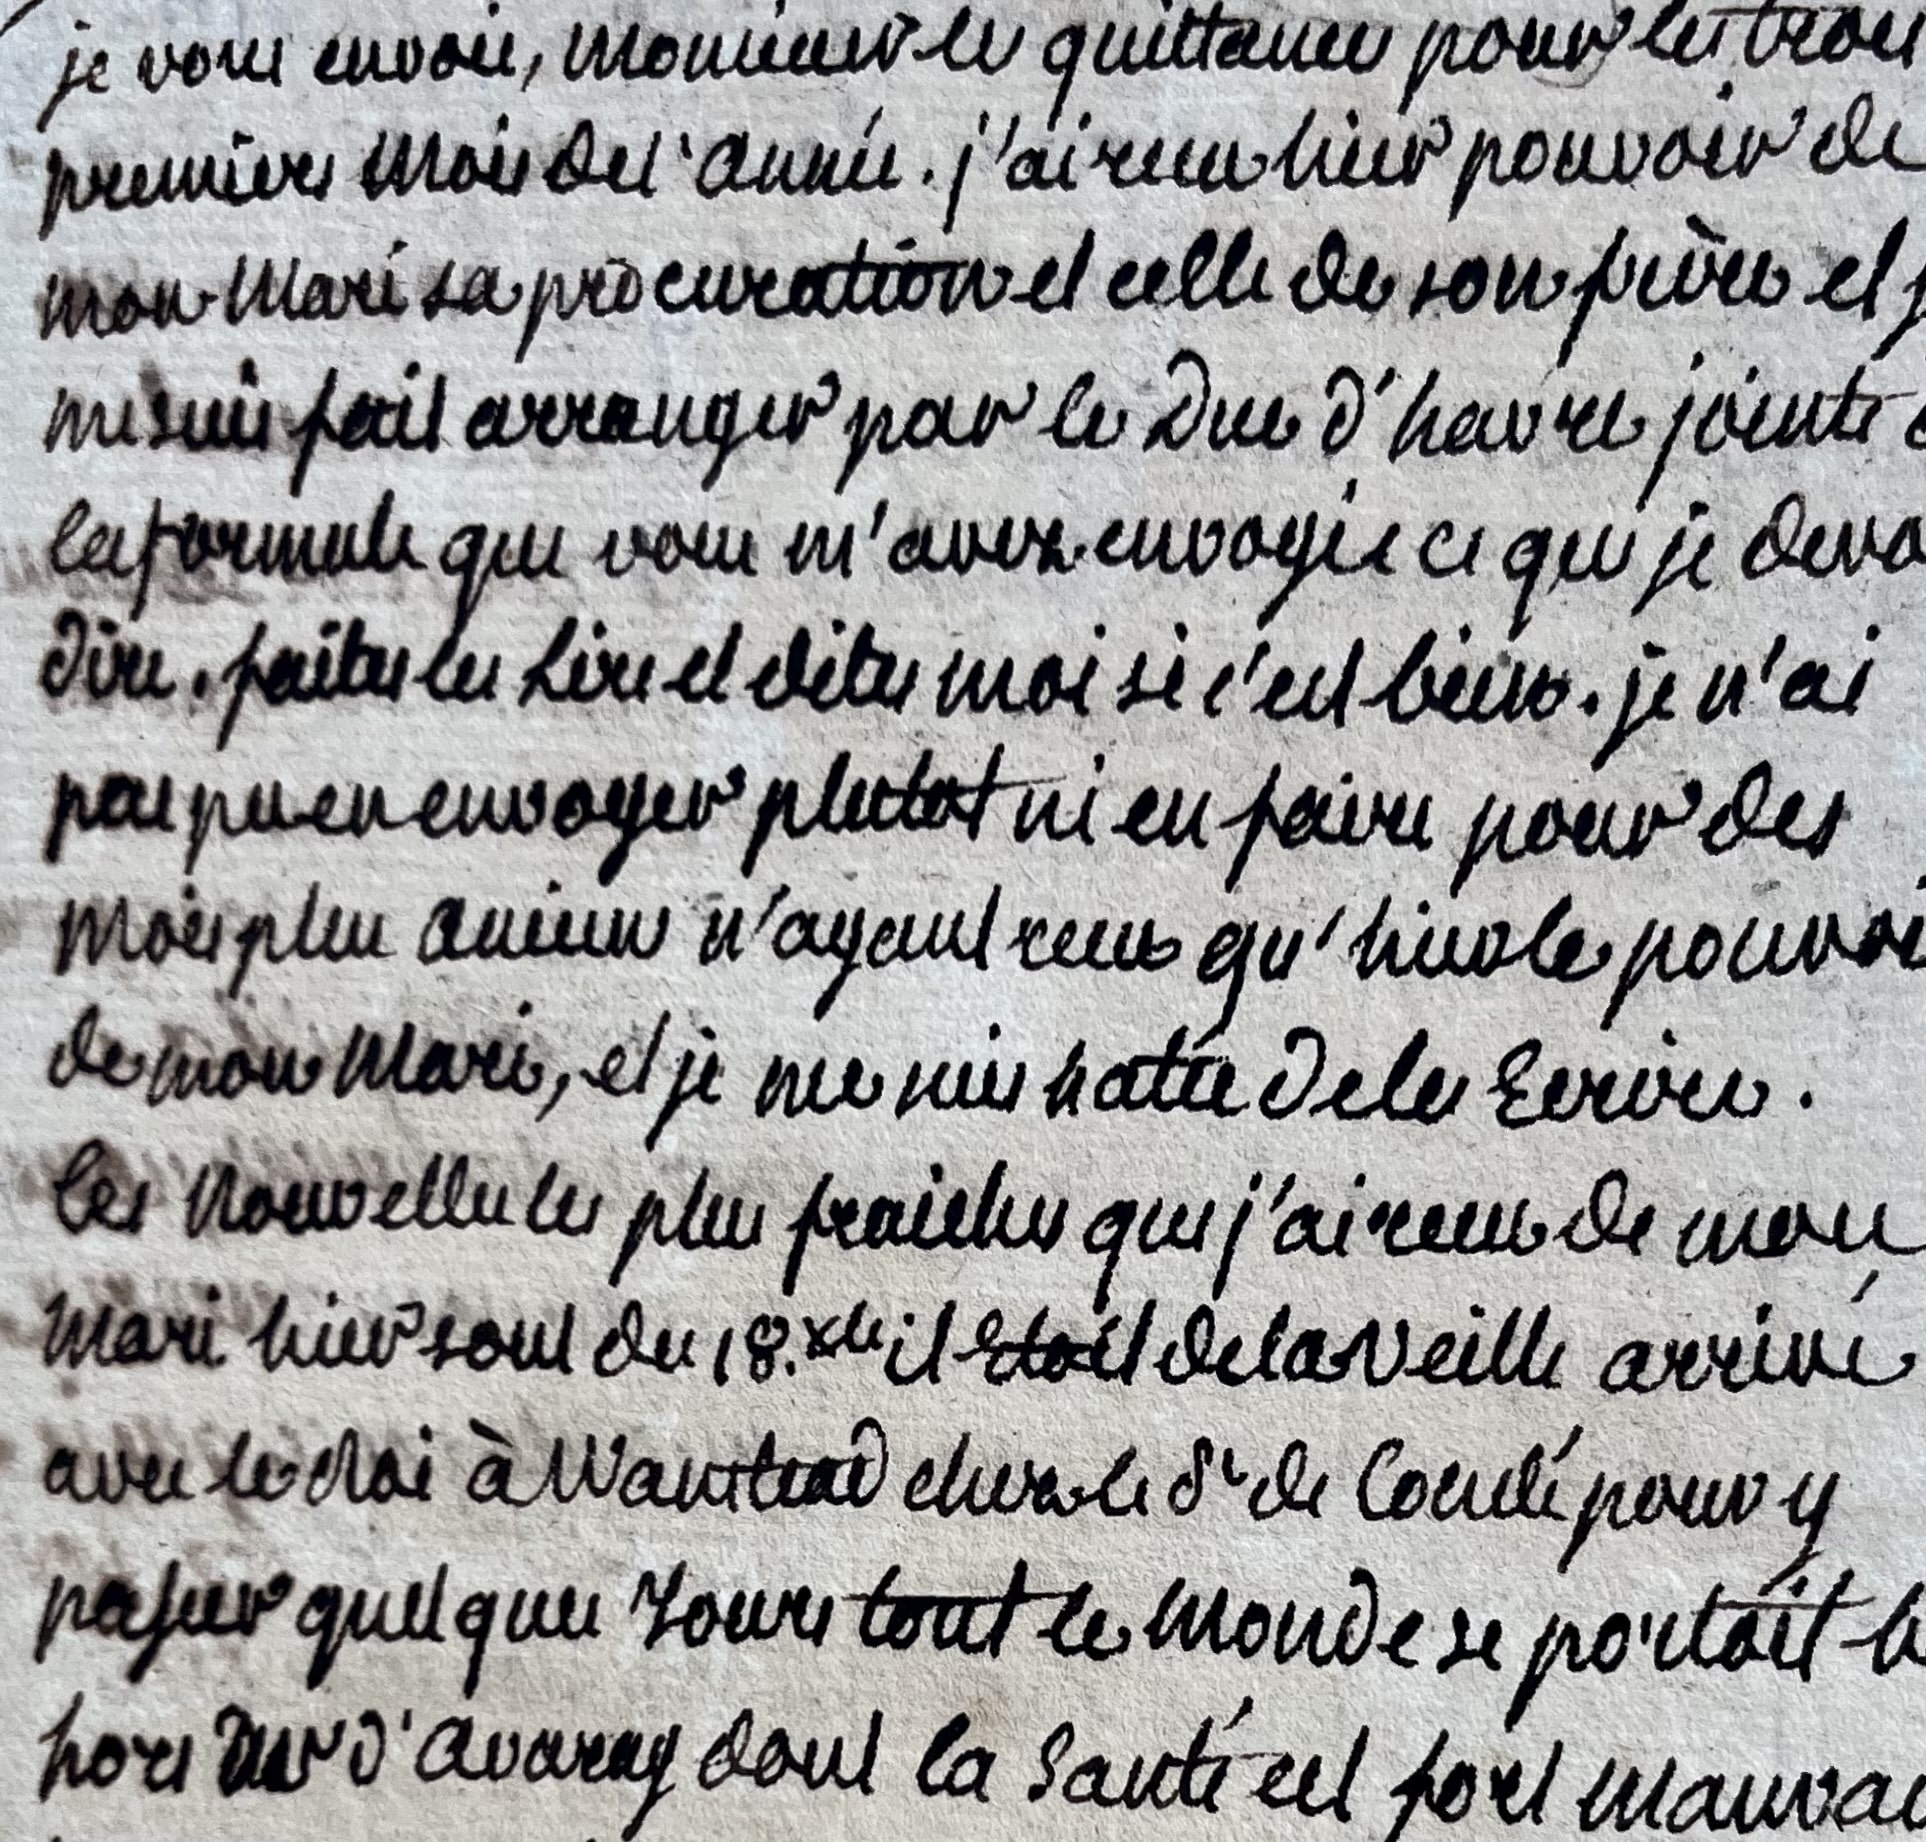 je vous envoie, monsieur les quittances pour les trois
premiers mois de l'année. j'ai recu hier pouvoir de
mon mari sa procuration et celle de son frère et j
me suis fait arranger par le Duc d'havré jointe a
la formule que vous m'avez envoyée ce que je deva
dire. faites les Lire et dites moi si c'est bien. je n'ai
pas pu en envoyer plutot ni en faire pour des
mois plus anciens n'ayant recu qu'hier le pouvoi
de mon mari, et je me suis hatée de les Ecrire.
les nouvelles les plus fraiches que j'ai recues de mon
mari hier sont du 18. xbre il Etoit de la Veille arrivé
avec le Roi à Wanstead chez le Pce de Condé pour y
passer quelques Jours tout le monde se portoit b
hors d'avaray dont la Santé est fort mauvai